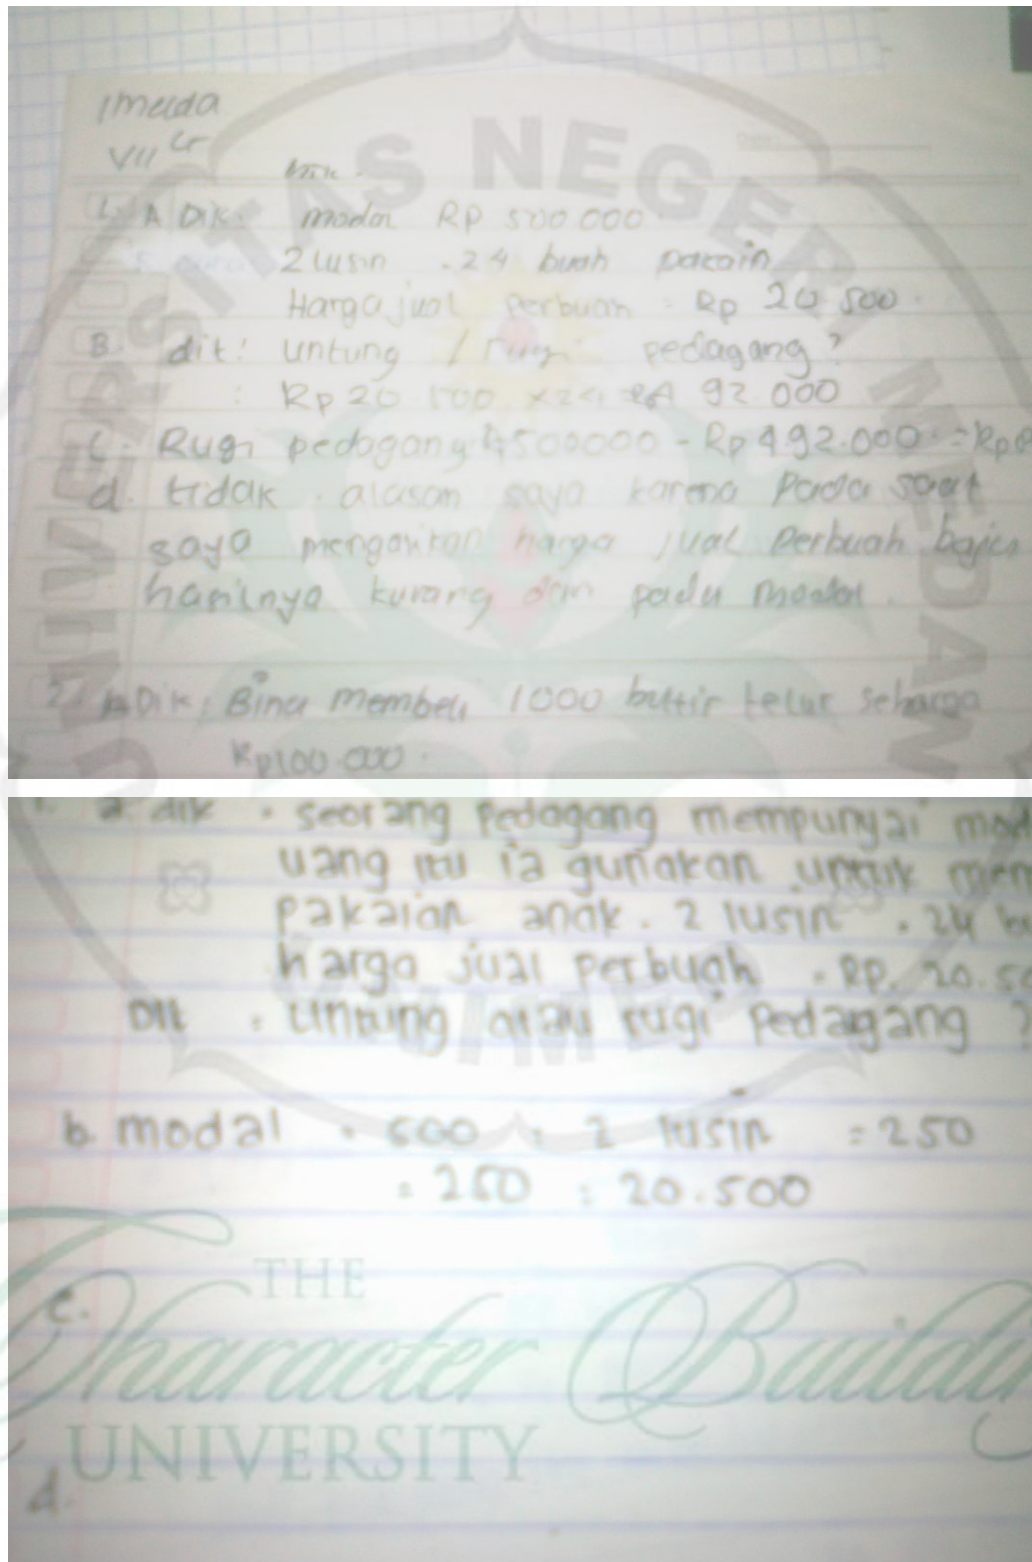 Imelda
VII
1. A Dik: modal Rp 500 000
2 lusin = 24 buah pakain
Harga jual perbuah = Rp 20 500.
B. dit: untung / rugi pedagang?
: Rp 20 500 x 24 492.000
C. Rugi pedagang 500000 - Rp 492.000. = Rp
d. tidak. alasan saya karena Pada saat
saya mengalikan harga jual perbuah baju
hasilnya kurang dari pada modal.
2. A Dik: Bina membeli 1000 buttir telur seharga
Rp100.000.
1. a. dik : seorang pedagang mempunyai mod
uang itu ia gunakan untuk mem
pakaian anak. 2 lusin = 24 b
harga jual perbuah = RP. 20.50
Dit : Untung atau rugi Pedagang ?
b. modal = 500 : 2 lusin = 250
= 250 : 20.500
c.
d.
UNIVERSITAS NEGERI MEDAN
UNIMED
THE
Character Building
UNIVERSITY